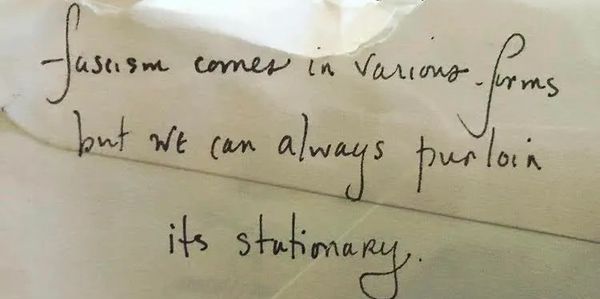 fascism comes in various forms
but we can always purloin
its stationary.